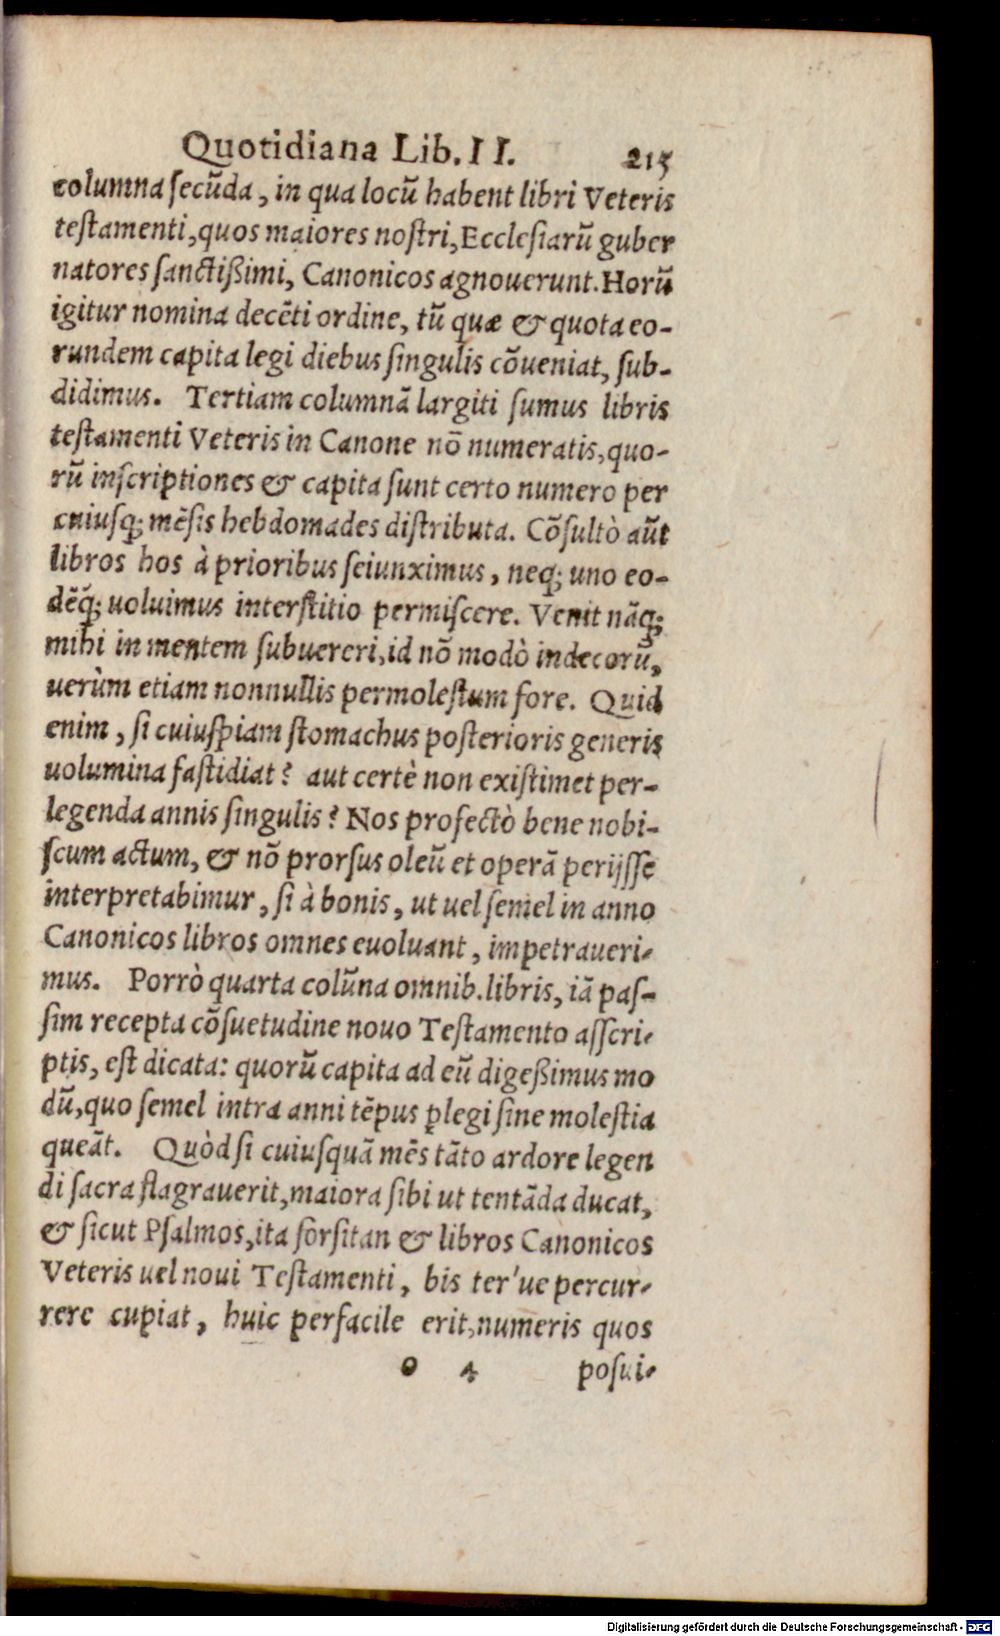 Quotidiana Lib. II. 215
columna ſecũda, in qua locũ habent libri Veteris
teſtamenti, quos maiores noſtri, Eccleſiarũ guber
natores ſanctißimi, Canonicos agnouerunt. Horũ
igitur nomina decẽti ordine, tũ quæ & quota eo-
rundem capita legi diebus ſingulis cõueniat, ſub-
didimus. Tertiam columnã largiti ſumus libris
teſtamenti Veteris in Canone nõ numeratis, quo-
rũ inſcriptiones & capita ſunt certo numero per
cuiuſq; mẽſis hebdomades diſtributa. Cõſultò aũt
libros hos à prioribus ſeiunximus, neq; uno eo-
dẽq́; uoluimus interſtitio permiſcere. Venit nãq;
mihi in mentem ſubuereri, id nõ modò indecorũ,
uerùm etiam nonnullis permoleſtum fore. Quid
enim, ſi cuiuſpiam ſtomachus poſterioris generis
uolumina faſtidiat? aut certè non exiſtimet per-
legenda annis ſingulis? Nos profectò bene nobi-
ſcum actum, & nõ prorſus oleũ et operã perijſſe
interpretabimur, ſi à bonis, ut uel ſemel in anno
Canonicos libros omnes euoluant, impetraueri-
mus. Porrò quarta colũna omnib. libris, iã paſ-
ſim recepta cõſuetudine nouo Teſtamento aſſcri-
ptis, eſt dicata: quorũ capita ad eũ digeßimus mo
dũ, quo ſemel intra anni tẽpus ꝑlegi ſine moleſtia
queãt. Quòd ſi cuiuſquã mẽs tãto ardore legen
di ſacra flagrauerit, maiora ſibi ut tentãda ducat,
& ſicut Pſalmos, ita forſitan & libros Canonicos
Veteris uel noui Teſtamenti, bis ter'ue percur-
rere cupiat, huic perfacile erit, numeris quos
o 4 poſui-
Digitalisierung gefördert durch die Deutsche Forschungsgemeinschaft - DFG